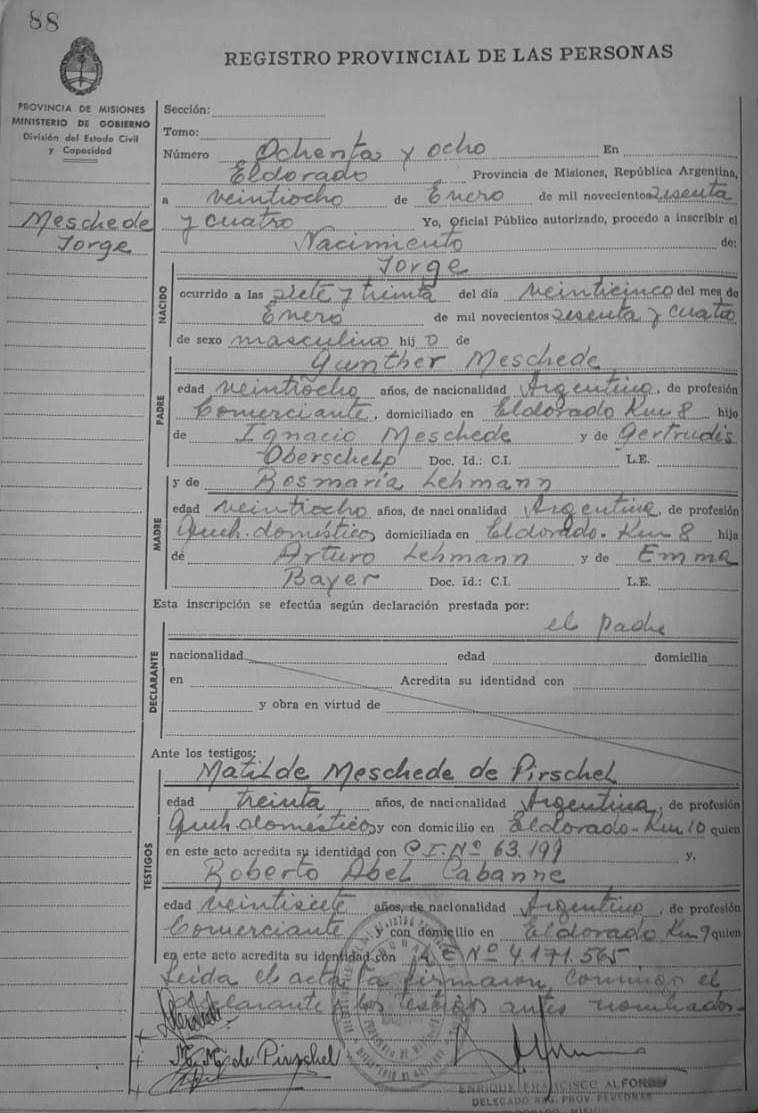 88
REGISTRO PROVINCIAL DE LAS PERSONAS
PROVINCIA DE MISIONES
MINISTERIO DE GOBIERNO
División del Estado Civil
y Capacidad
Meschede
Jorge
Sección:
Tomo:
Número Ochenta y ocho En
Eldorado Provincia de Misiones, República Argentina,
a veintiocho de Enero de mil novecientos sesenta
y cuatro Yo, Oficial Público autorizado, procedo a inscribir el
Nacimiento de:
NACIDO
Jorge
ocurrido a las siete y treinta del día veinticinco del mes de
Enero de mil novecientos sesenta y cuatro
de sexo masculino hij o de
PADRE
Gunther Meschede
edad veintiocho años, de nacionalidad Argentino, de profesión
Comerciante, domiciliado en Eldorado Km 8 hijo
de Ignacio Meschede y de Gertrudis
Oberschelp Doc. Id.: C.I. L.E.
MADRE
y de Rosmaría Lehmann
edad veintiocho años, de nacionalidad Argentina, de profesión
Queh. domésticos domiciliada en Eldorado - Km 8 hija
de Arturo Lehmann y de Emma
Bayer Doc. Id.: C.I. L.E.
Esta inscripción se efectúa según declaración prestada por:
el padre
DECLARANTE
nacionalidad edad domicilia
en Acredita su identidad con
y obra en virtud de
Ante los testigos:
TESTIGOS
Matilde Meschede de Pirschel
edad treinta años, de nacionalidad Argentina, de profesión
Queh. domésticos y con domicilio en Eldorado - Km 10 quien
en este acto acredita su identidad con C.I. Nº 63.199 y,
Roberto Abel Cabanne
edad veintisiete años, de nacionalidad Argentino, de profesión
Comerciante y con domicilio en Eldorado Km 9 quien
en este acto acredita su identidad con L.E Nº 4.171.565
Leída el acta la firmaron conmigo el
declarante y los testigos antes nombrados.
M. M. de Pirschel
ENRIQUE FRANCISCO ALFONSO
DELEGADO REG. PROV. PERSONAS